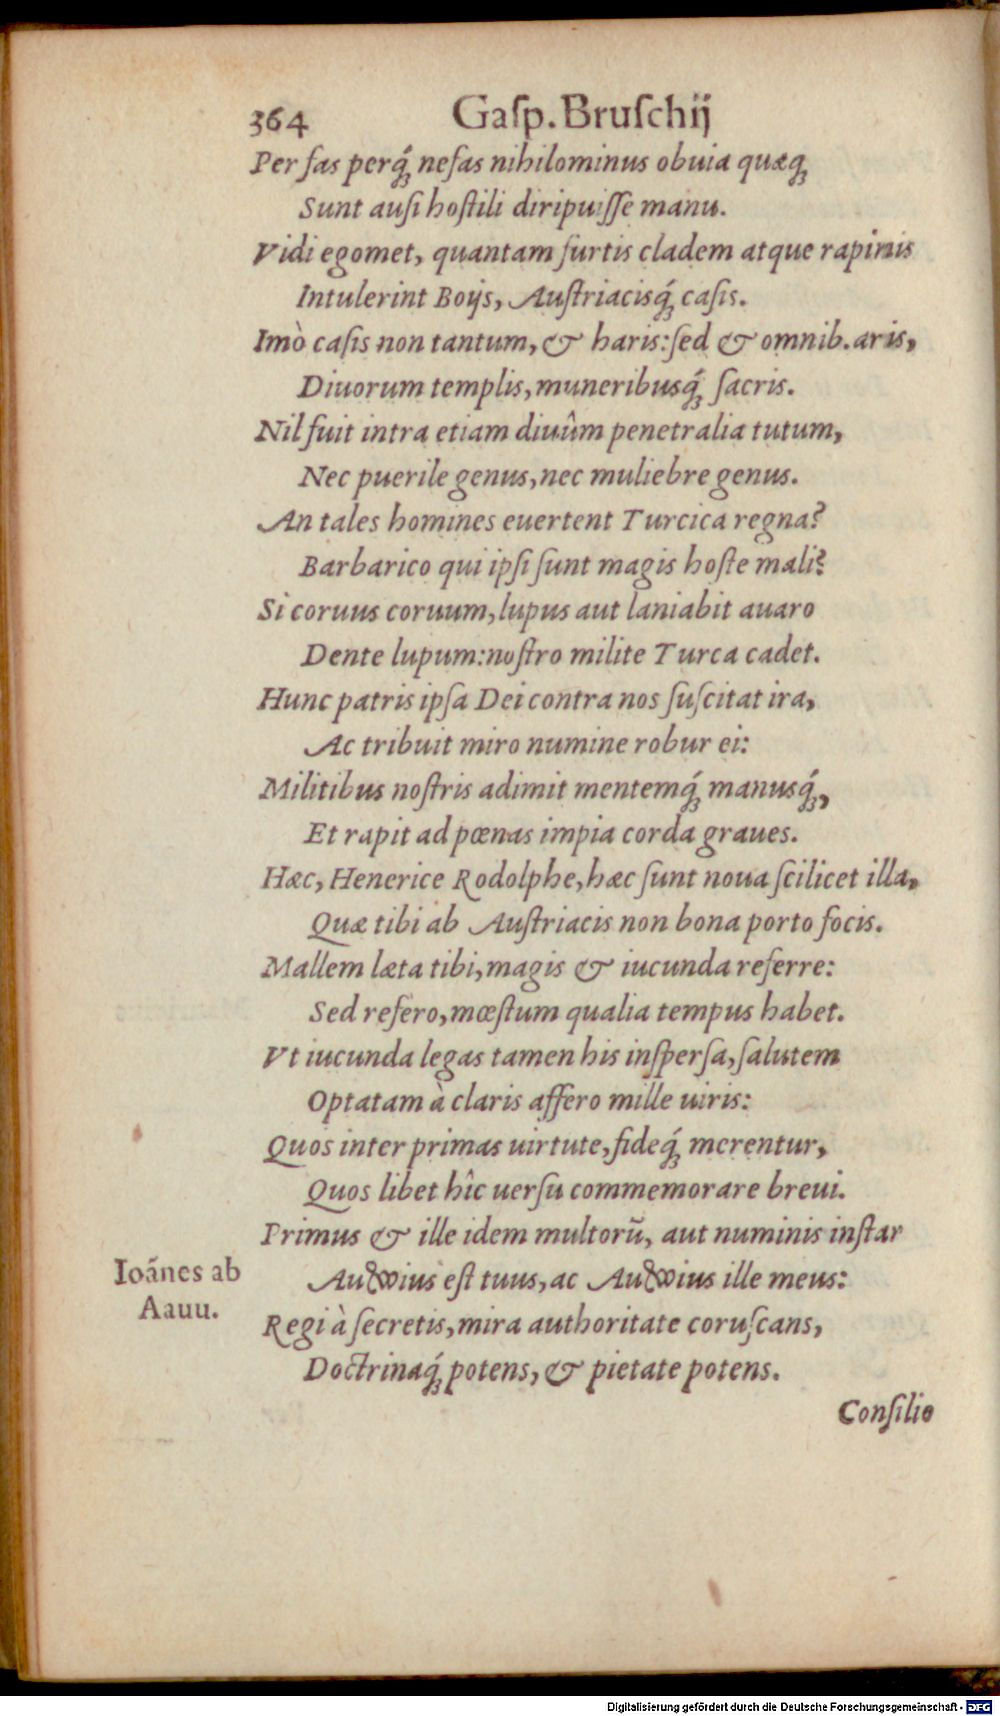 364 Gaſp. Bruſchij
Per fas perq́ꝫ nefas nihilominus obuia quæqꝫ
Sunt auſi hoſtili diripuiſſe manu.
Vidi egomet, quantam furtis cladem atque rapinis
Intulerint Boijs, Auſtriacisq́ꝫ caſis.
Imò caſis non tantum, & haris: ſed & omnib. aris,
Diuorum templis, muneribusq́ꝫ ſacris.
Nil fuit intra etiam diuûm penetralia tutum,
Nec puerile genus, nec muliebre genus.
An tales homines euertent Turcica regna?
Barbarico qui ipſi ſunt magis hoſte mali?
Si coruus coruum, lupus aut laniabit auaro
Dente lupum: noſtro milite Turca cadet.
Hunc patris ipſa Dei contra nos ſuſcitat ira,
Ac tribuit miro numine robur ei:
Militibus noſtris adimit mentemq́ꝫ manusq́ꝫ,
Et rapit ad pœnas impia corda graues.
Hæc, Henerice Rodolphe, hæc ſunt noua ſcilicet illa,
Quæ tibi ab Auſtriacis non bona porto focis.
Mallem læta tibi, magis & iucunda referre:
Sed refero, mœſtum qualia tempus habet.
Vt iucunda legas tamen his inſperſa, ſalutem
Optatam à claris affero mille uiris:
Quos inter primas uirtute, fideq́ꝫ merentur,
Quos libet hîc uerſu commemorare breui.
Primus & ille idem multorū, aut numinis inſtar
Ioānes ab
Aauu.
Auwius eſt tuus, ac Auwius ille meus:
Regi à ſecretis, mira authoritate coruſcans,
Doctrinaq́ꝫ potens, & pietate potens.
Conſilio
Digitalisierung gefördert durch die Deutsche Forschungsgemeinschaft - DFG